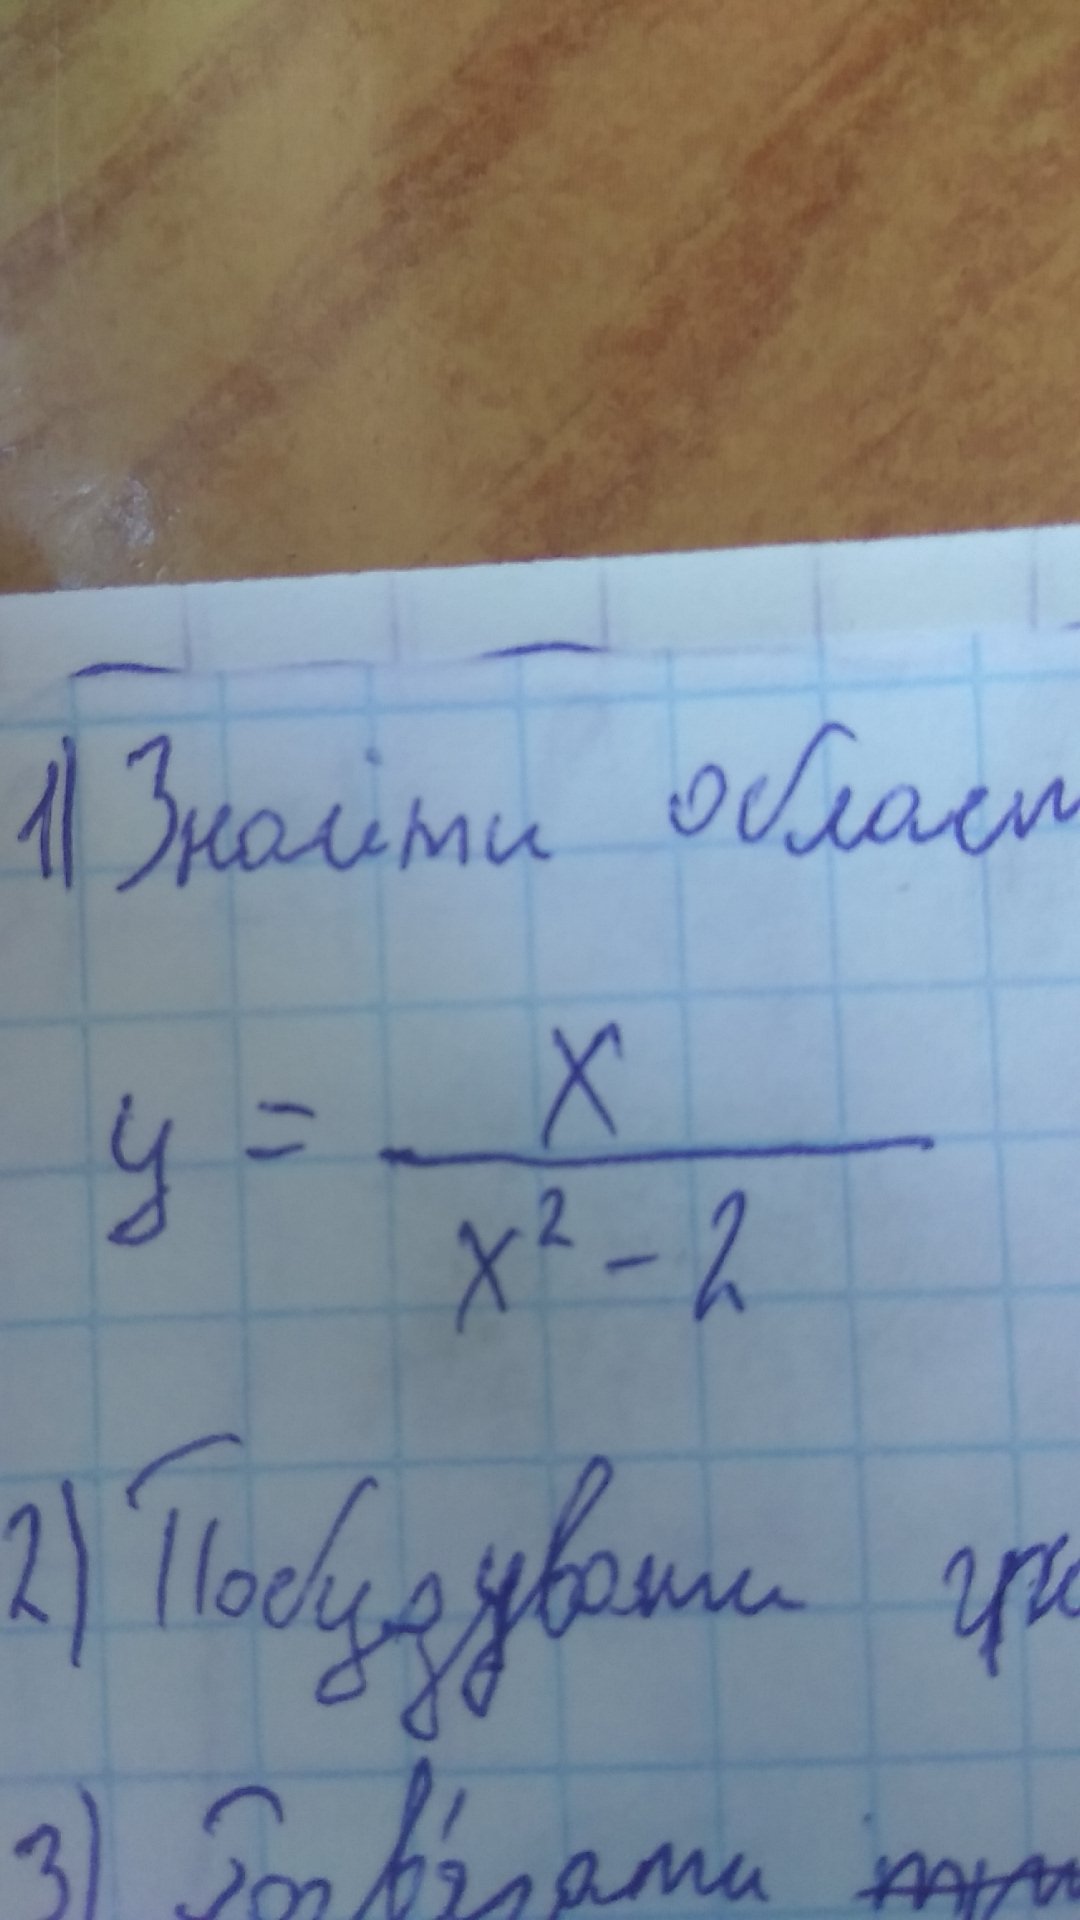 1) Знайти област
y = x / (x² - 2)
2) Побудувати
3) Розв'язати